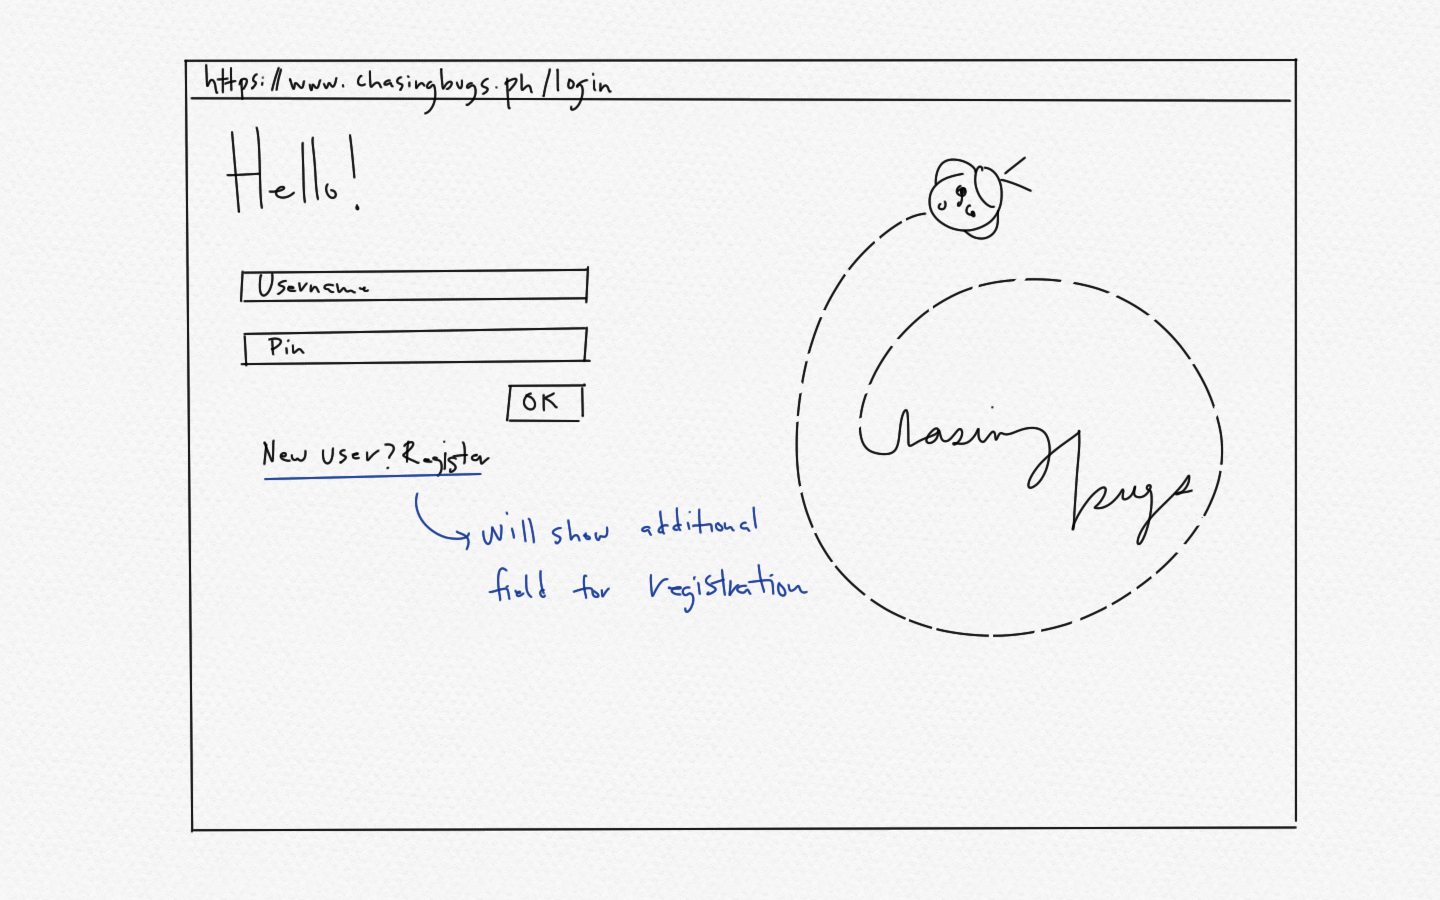 https://www.chasingbugs.ph/login
Hello!
Username
Pin
OK
New user? Register
will show additional
field for registration
Chasing
bugs